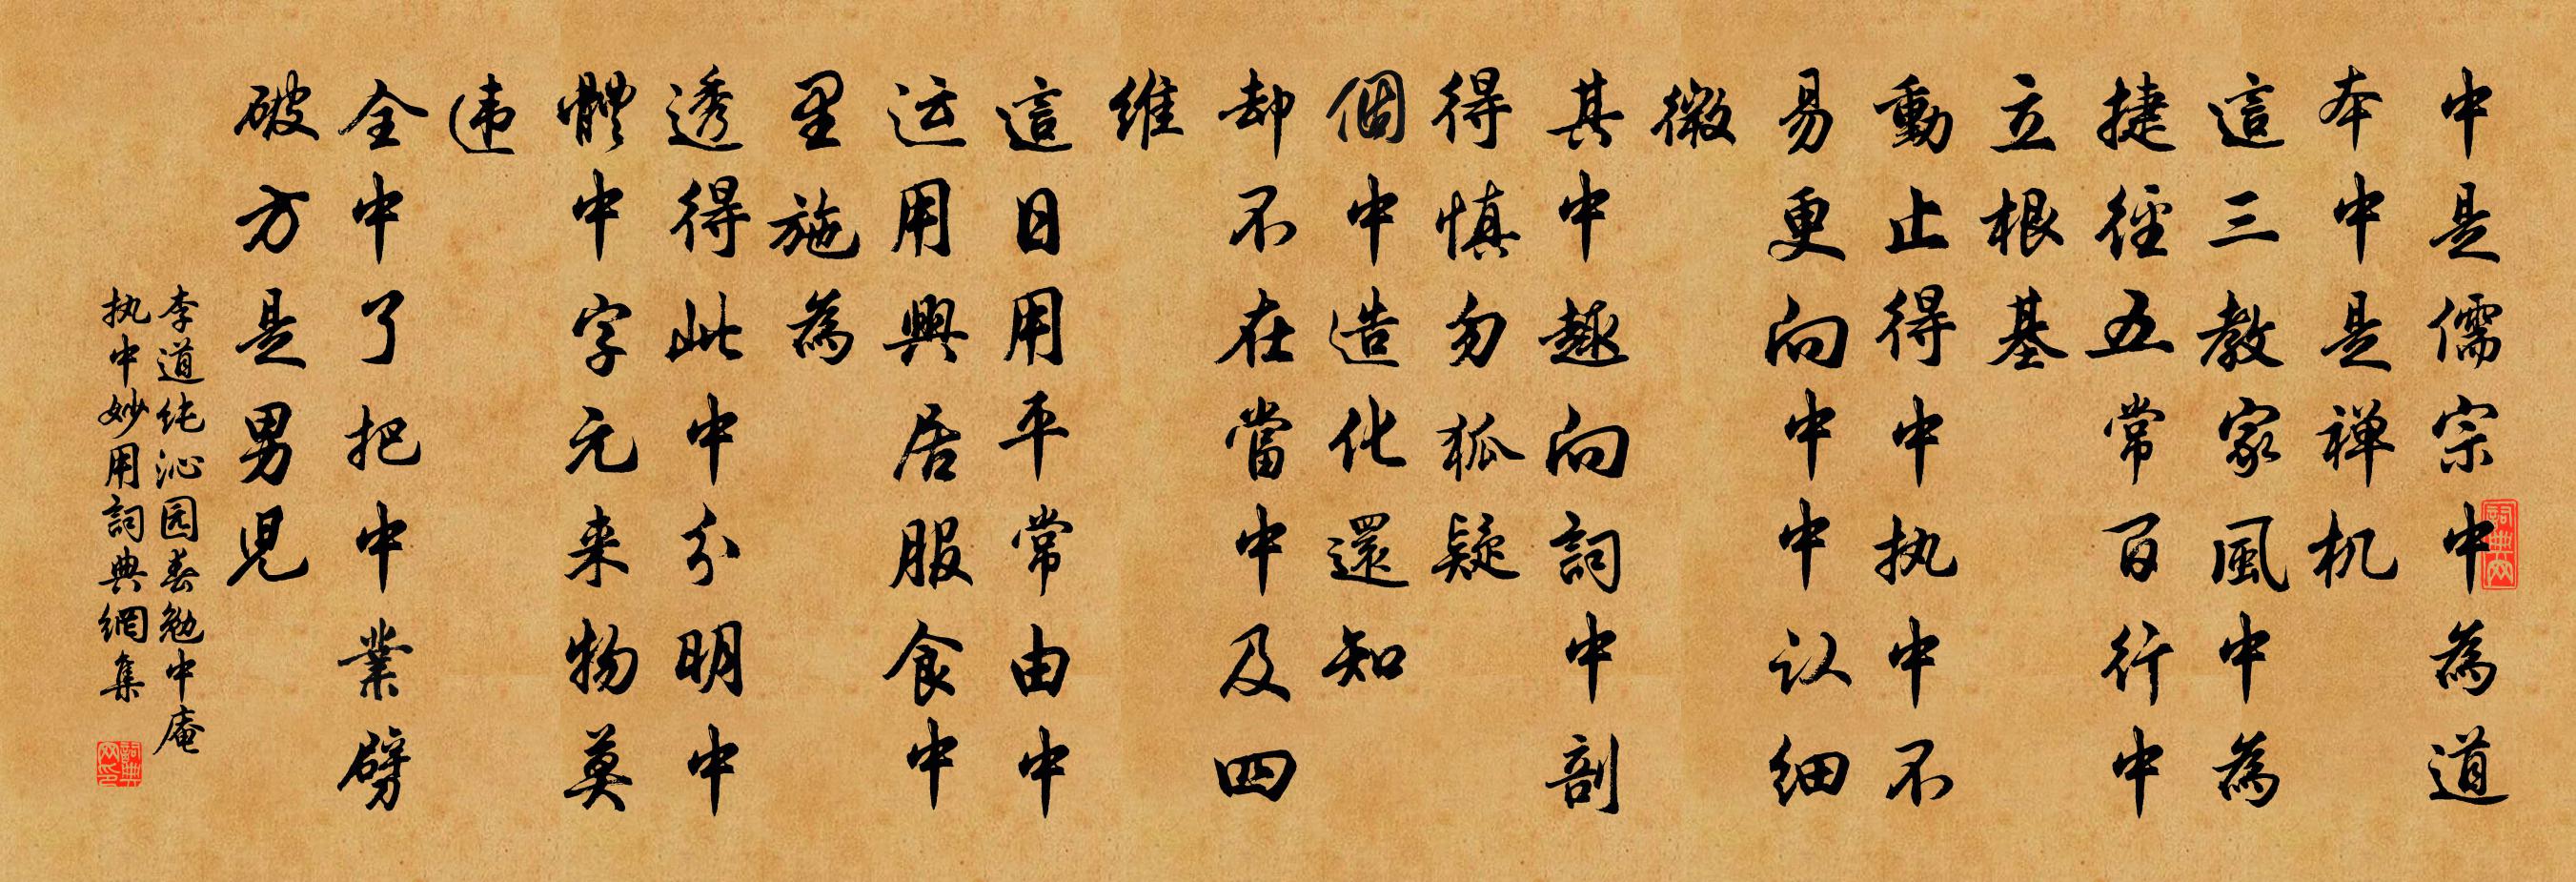 中是儒宗中為道
本中是禅机
這三教家風中為
捷徑五常百行中
立根基
動止得中执中不
易更向中中认细
微
其中趣向詞中剖
得慎勿狐疑
個中造化還知
却不在當中及四
维
這日用平常由中
运用興居服食中
里施為
透得此中分明中
體中字元来物莫
违
全中了把中業劈
破方是男児
李道纯沁园春勉中庵
执中妙用詞典網集
詞典网
詞典网印